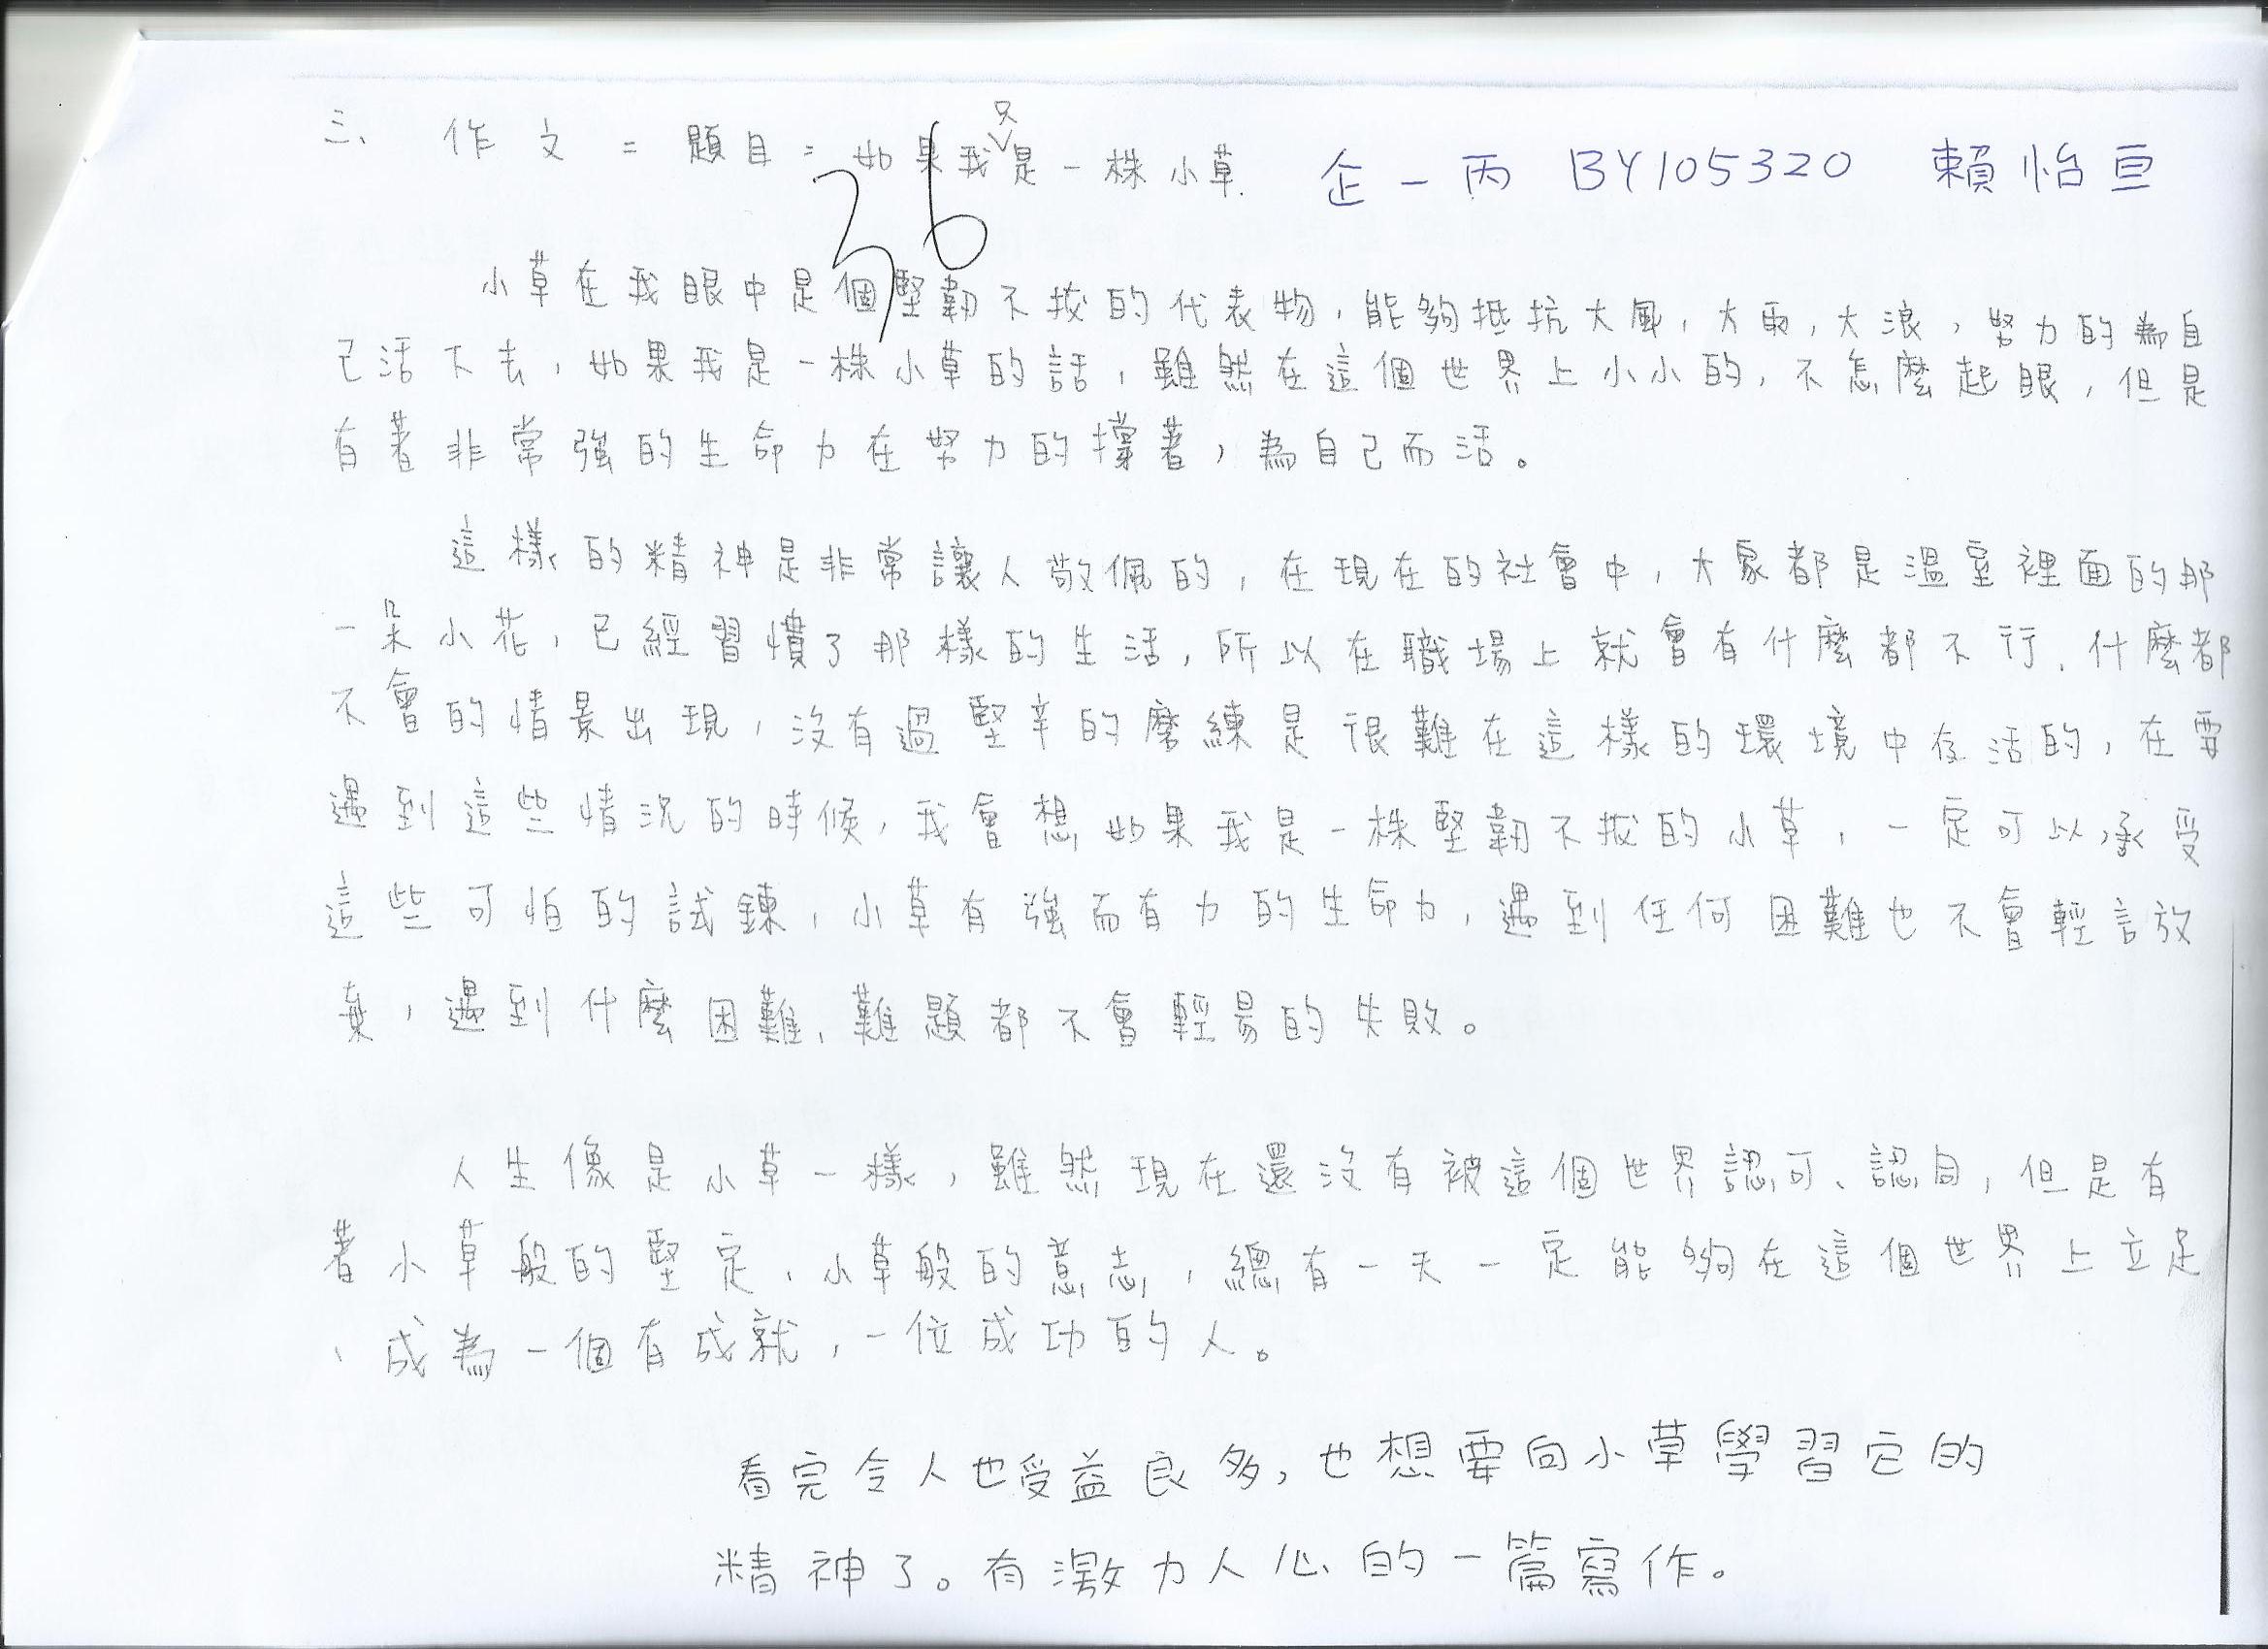 三、作文=題目=如果我只是一株小草. 企一丙 BY105320 賴怡亘
36
小草在我眼中是個堅韌不拔的代表物,能夠抵抗大風,大雨,大浪,努力的為自
己活下去,如果我是一株小草的話,雖然在這個世界上小小的,不怎麼起眼,但是
有著非常強的生命力在努力的撐著,為自己而活。
這樣的精神是非常讓人敬佩的,在現在的社會中,大家都是溫室裡面的那
一朵小花,已經習慣了那樣的生活,所以在職場上就會有什麼都不行、什麼都
不會的情景出現,沒有過堅辛的磨練是很難在這樣的環境中存活的,在要
遇到這些情況的時候,我會想如果我是一株堅韌不拔的小草,一定可以承受
這些可怕的試鍊,小草有強而有力的生命力,遇到任何困難也不會輕言放
棄,遇到什麼困難、難題都不會輕易的失敗。
人生像是小草一樣,雖然現在還沒有被這個世界認可、認同,但是有
著小草般的堅定、小草般的意志,總有一天一定能夠在這個世界上立足
、成為一個有成就,一位成功的人。
看完令人也受益良多,也想要向小草學習它的
精神了。有激力人心的一篇寫作。